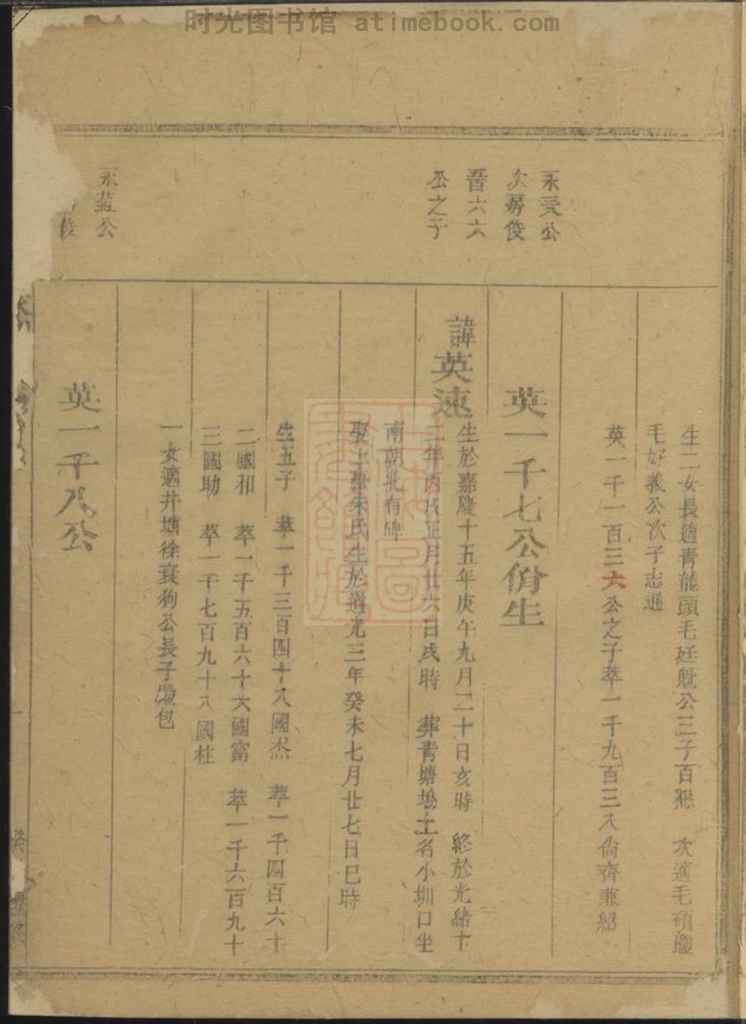 时光图书馆 atimebook.com
永受公
次房俊
晉六六
公之子
永益公
俊
生二女長適青龍頭毛廷殿公三子百懇 次適毛
毛好義公次子志通
英一千一百三六公之子萃一千九百三入尙齊兼紹
英一千七公俏生
諱英速
生於嘉慶十五年庚午九月二十日亥時 終於光緒十
二年丙戌正月廿六日戌時 葬青塘塢土名小圳口坐
南朝北有碑
娶上 朱氏生於道光三年癸未七月廿七日巳時
生五子 萃一千三百四十入國杰 萃一千四百六十
二國和 萃一千五百六十六國富 萃一千六百九十
三國助 萃一千七百九十八國柱
一女適井塘徐衰狗公長子 包
英一千八公